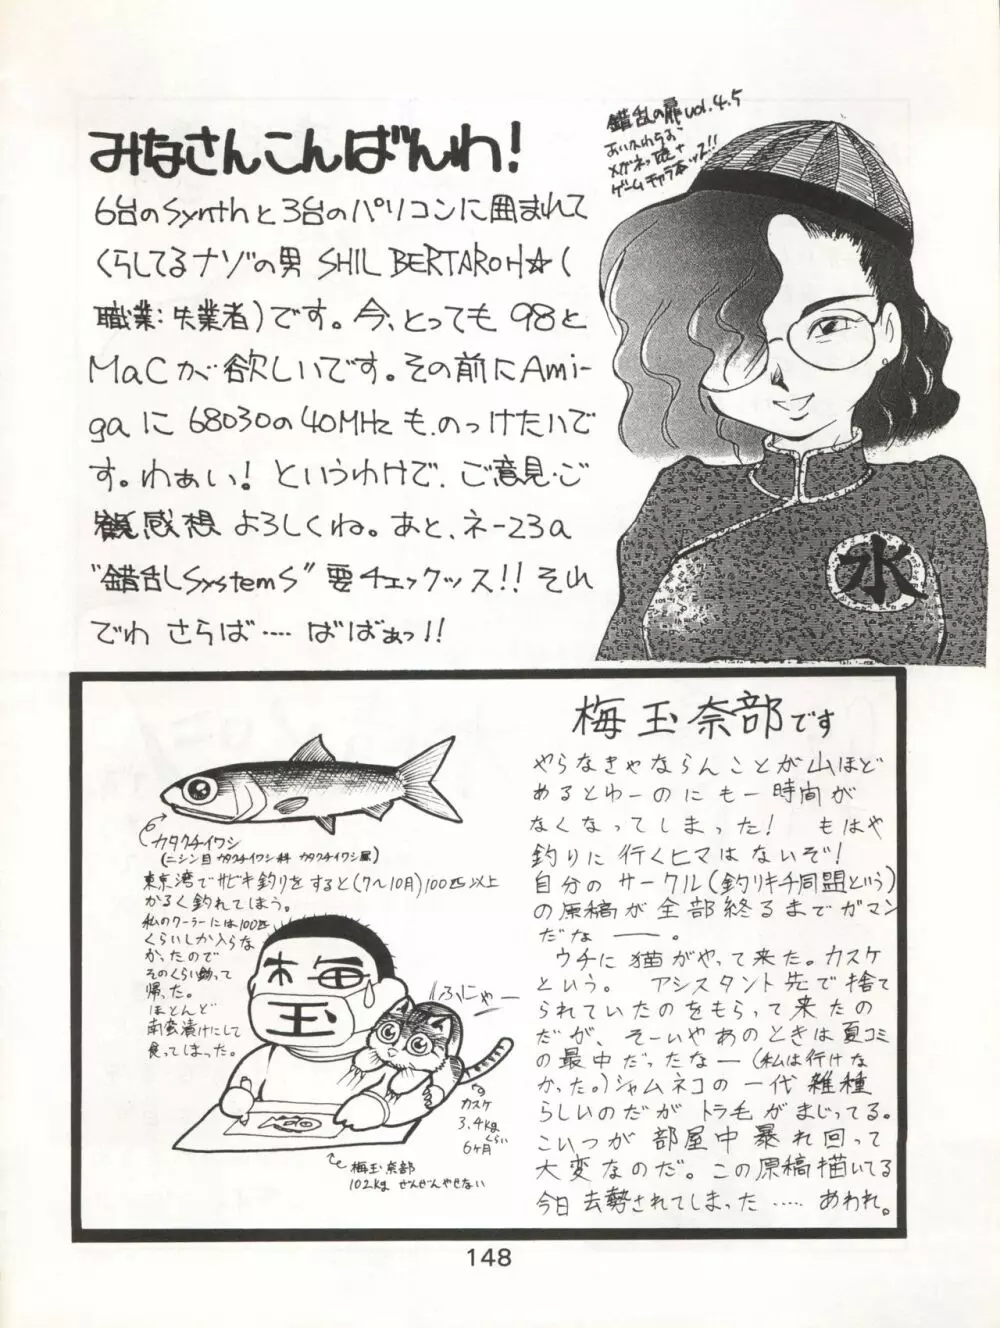 みなさんこんばんわ!
6台のSynthと3台のパソコンに囲まれて
くらしてるナゾの男 SHIL BERTAROH☆(
職業:失業者)です。今、とっても 98と
MaCが欲しいです。その前にAmi-
gaに 68030の40MHz も、のっけたいで
す。わぁい! というわけで、ご意見・ご
感想 よろしくね。あと、ネー23a
"錯乱SystemS" 要チェックッス!! それ
でわ さらば‥‥ ばばぁっ!!
錯乱の扉vol.4.5
メガネっ娘+
ゲームキャラ本ッス!!
水
梅玉奈部です
やらなきゃならんことが山ほど
あるとゆーのにもー時間が
なくなってしまった! もはや
釣りに行くヒマはないぞ!
自分のサークル(釣りキチ同盟という)
の原稿が全部終るまでガマン
だなー。
ウチに猫がやって来た。カスケ
という。 アシスタント先で捨て
られていたのをもらって来たの
だが、そーいやあのときは夏コミ
の最中だったなー(私は行けな
かった。)シャムネコの一代雑種
らしいのだがトラ毛がまじってる。
こいつが部屋中暴れ回って
大変なのだ。この原稿描いてる
今日去勢されてしまった‥‥‥あわれ。
カタクチイワシ
(ニシン目カタクチイワシ科 カタクチイワシ属)
東京湾でサビキ釣りをすると(7〜10月)100匹以上
かるく釣れてしまう。
私のクーラーには100匹
くらいしか入らな
かったので
そのくらい釣って
帰った。
ほとんど
南蛮漬けにして
食ってしまった。
梅
玉
ふにゃー
カスケ
3.4kg
くらい
6ヶ月
梅玉奈部
102kg ぜんぜんやせない
148